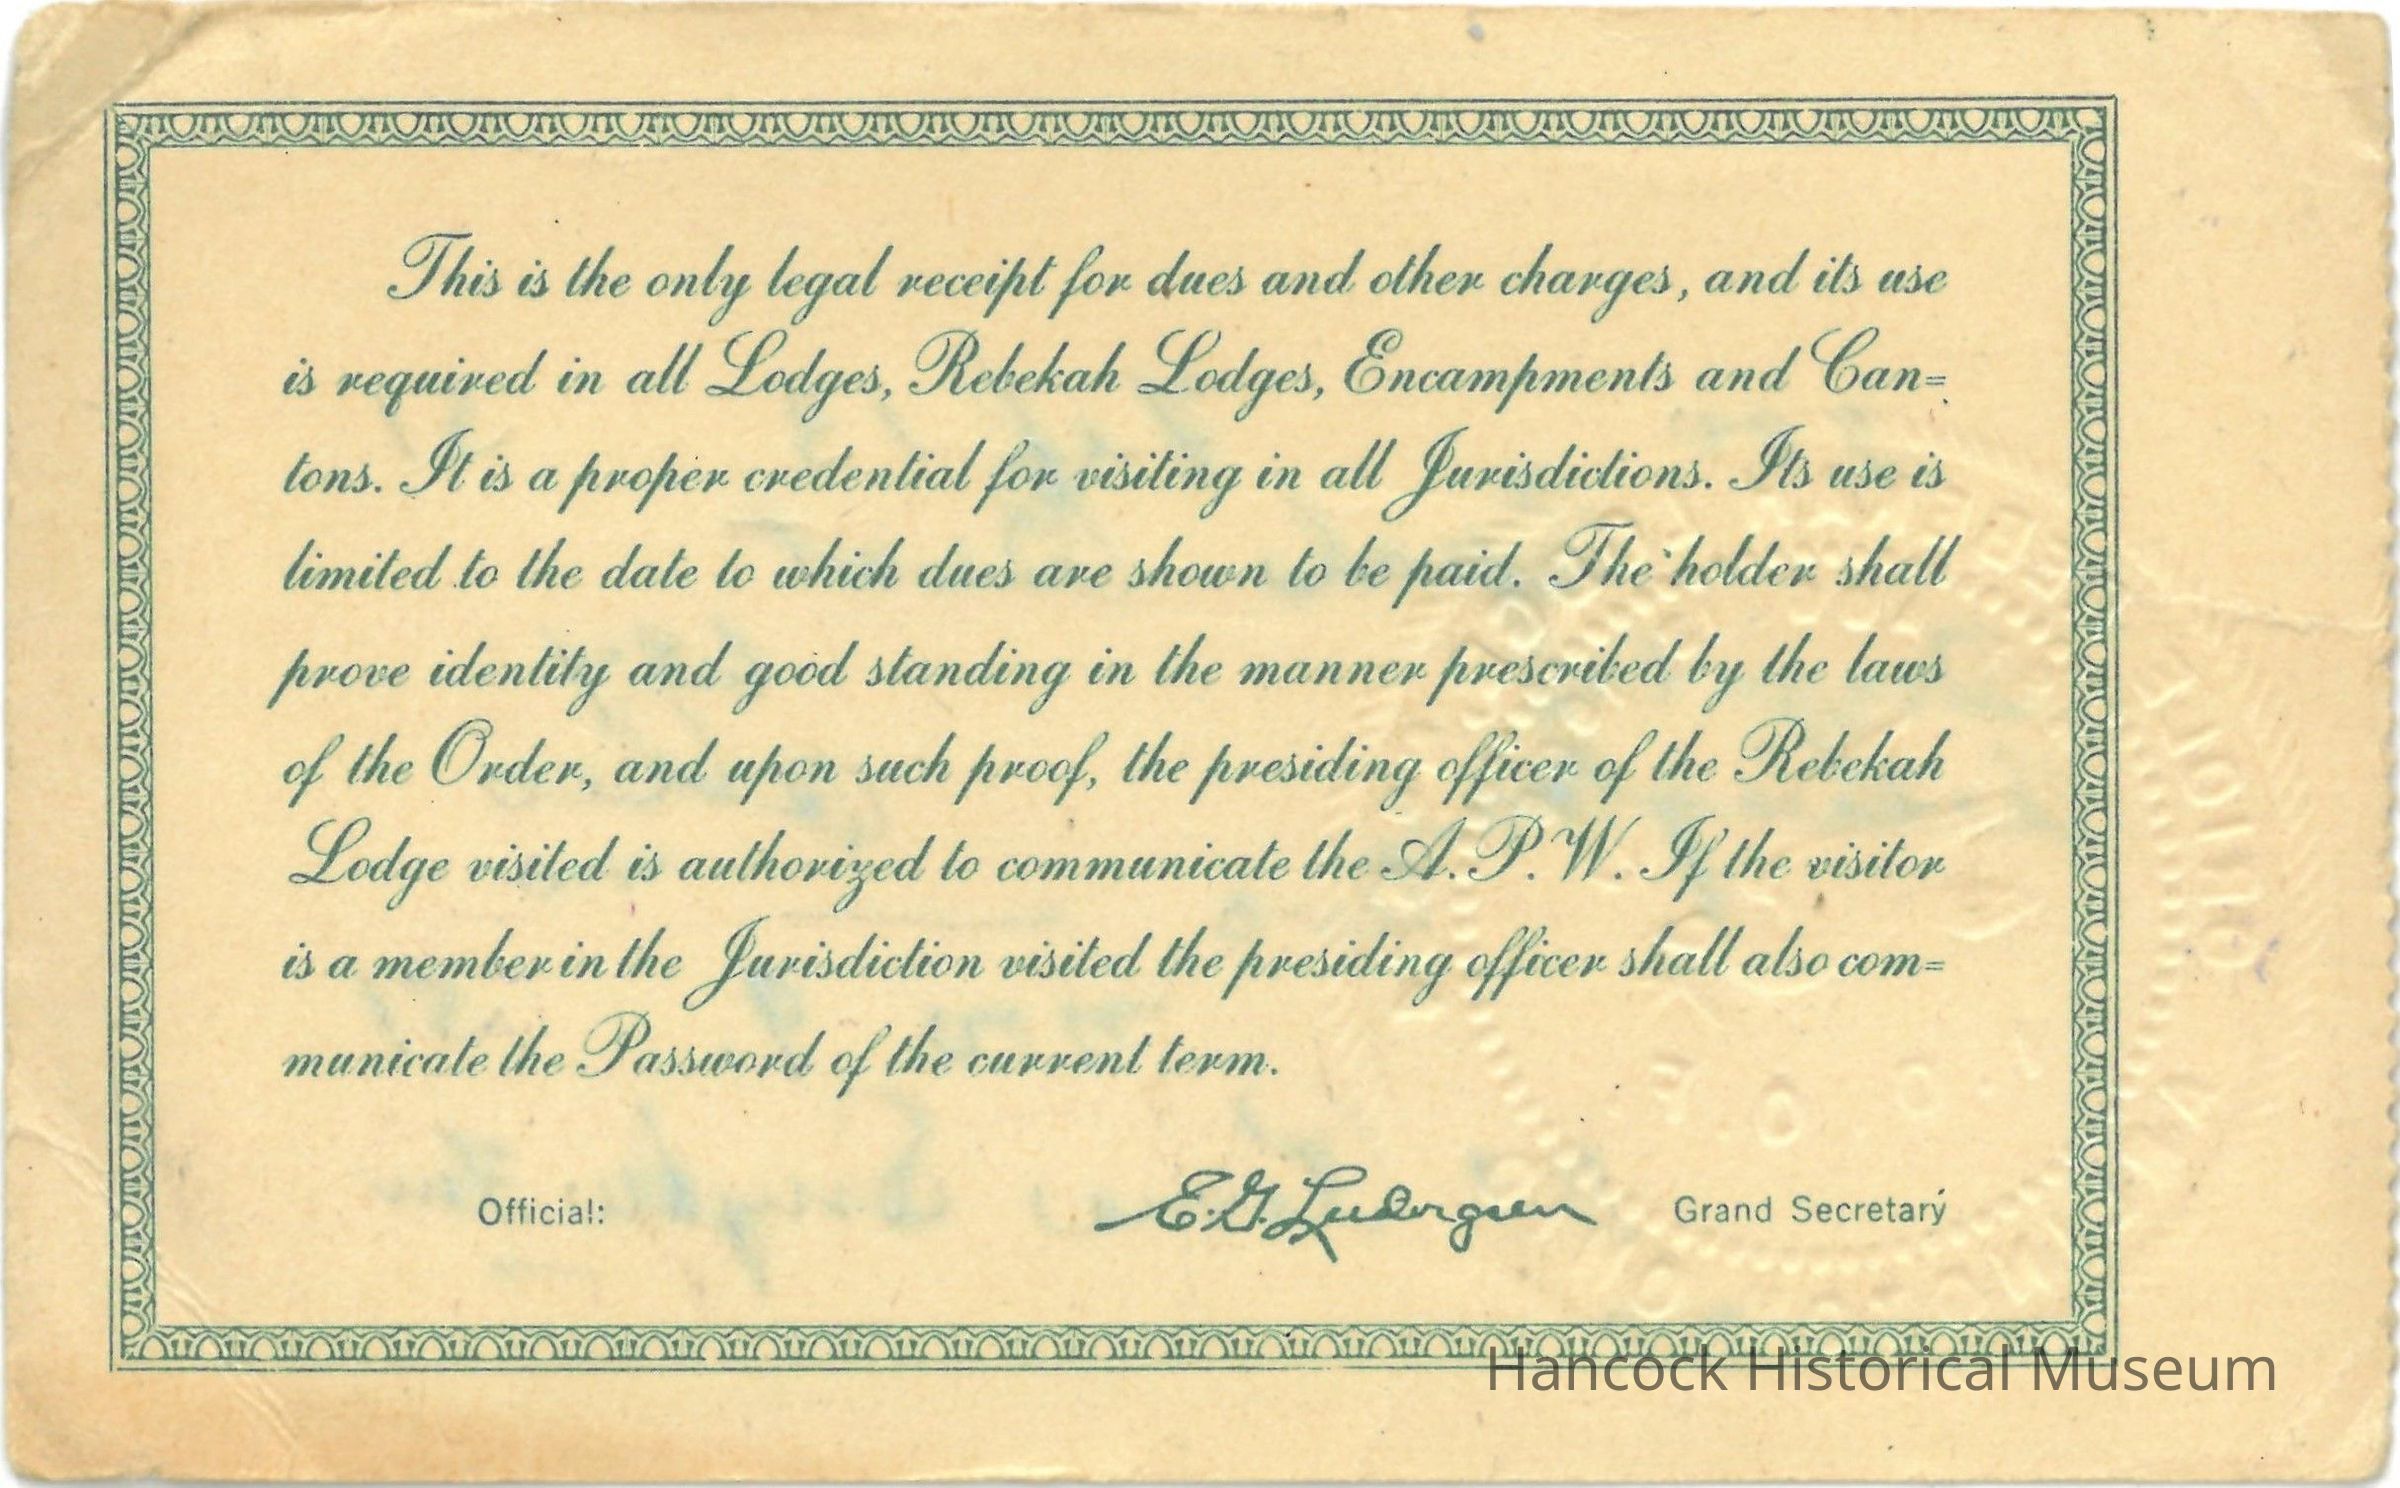 This is the only legal receipt for dues and other charges, and its use
is required in all Lodges, Rebekah Lodges, Encampments and Can=
tons. It is a proper credential for visiting in all Jurisdictions. Its use is
limited to the date to which dues are shown to be paid. The holder shall
prove identity and good standing in the manner prescribed by the laws
of the Order, and upon such proof, the presiding officer of the Rebekah
Lodge visited is authorized to communicate the A. P. W. If the visitor
is a member in the Jurisdiction visited the presiding officer shall also com=
municate the Password of the current term.
Official: E. G. Ludvigsen Grand Secretary
Hancock Historical Museum